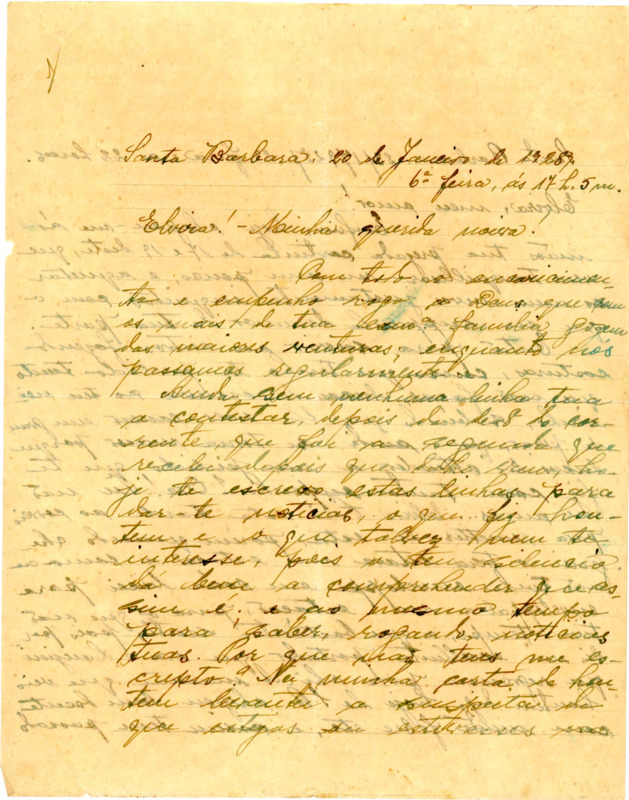 Santa Barbara. 20 de Janeiro de 1928.
6ª feira, ás 17 h. 5 m.
Elvira! - Minha querida noiva.
Com todo o encarecimen-
to e empenho rogo a Deus que com
os mais de tua exmª familia, gozem
das maiores venturas, enquanto nós
passamos regularmente.
Ainda sem nenhuma linha tua
a contestar, depois da de 8 do cor-
rente que foi a segunda que
recebi depois que
je te escrevo estas linhas para
dar-te noticias, o que fiz hon-
tem e o que talvez nem te
interesse, pois o teu silencio
dá bem a comprehender que as-
sim é, e ao mesmo tempo
para saber, rogando, noticias
tuas. Por que não tens me es-
cripto? Na minha carta de hon-
tem levantei a suspeita de
que estejas, ou estivesses